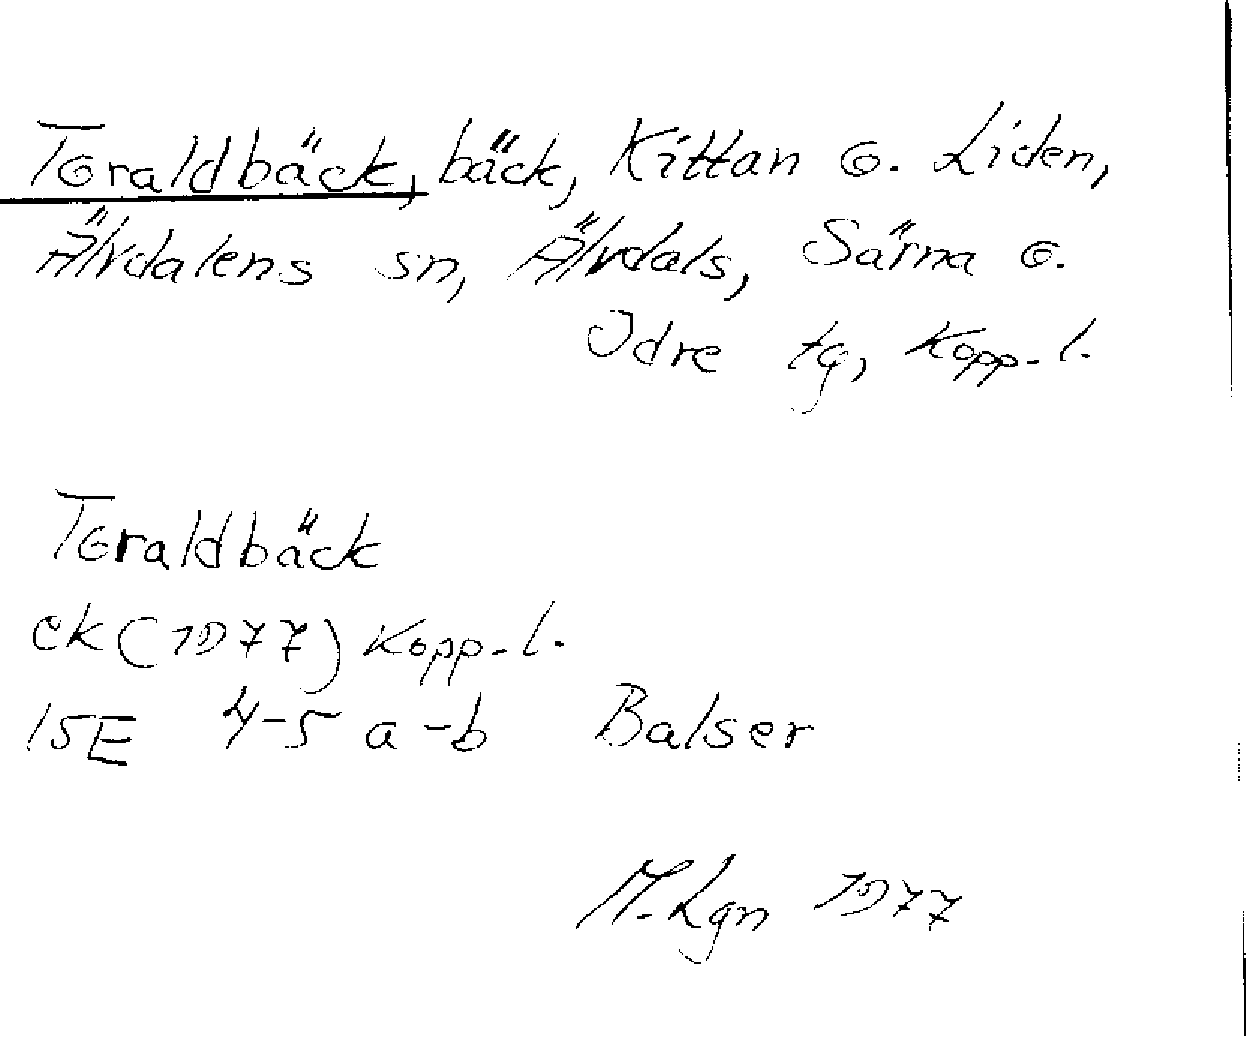 Toraldbäck, bäck, Kittan o. Liden,
Älvdalens sn, Älvdals, Särna o.
Idre tg, Kopp-l.
Toraldbäck
ek (1977) Kopp-l.
15E 4-5 a-b Balser
M. Lgn 1977